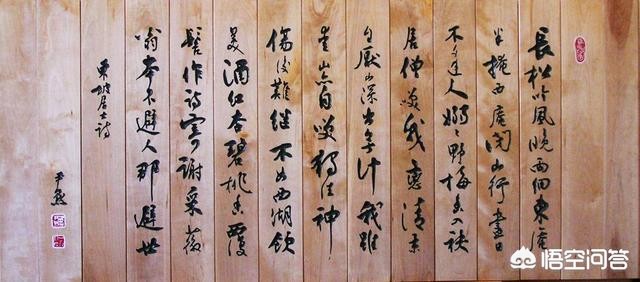 長松吟風晚雨細東庵
半掩西庵閉山行盡日
不逢人裛々野梅香入袂
居僧笑我戀清景
自厭山深出無計我雖
愛山亦自笑獨往神
傷後難継不如西湖飲
美酒紅杏碧桃香覆
髻作詩寄謝采薇
翁本不避人那避世
東坡居士詩
悟空问答